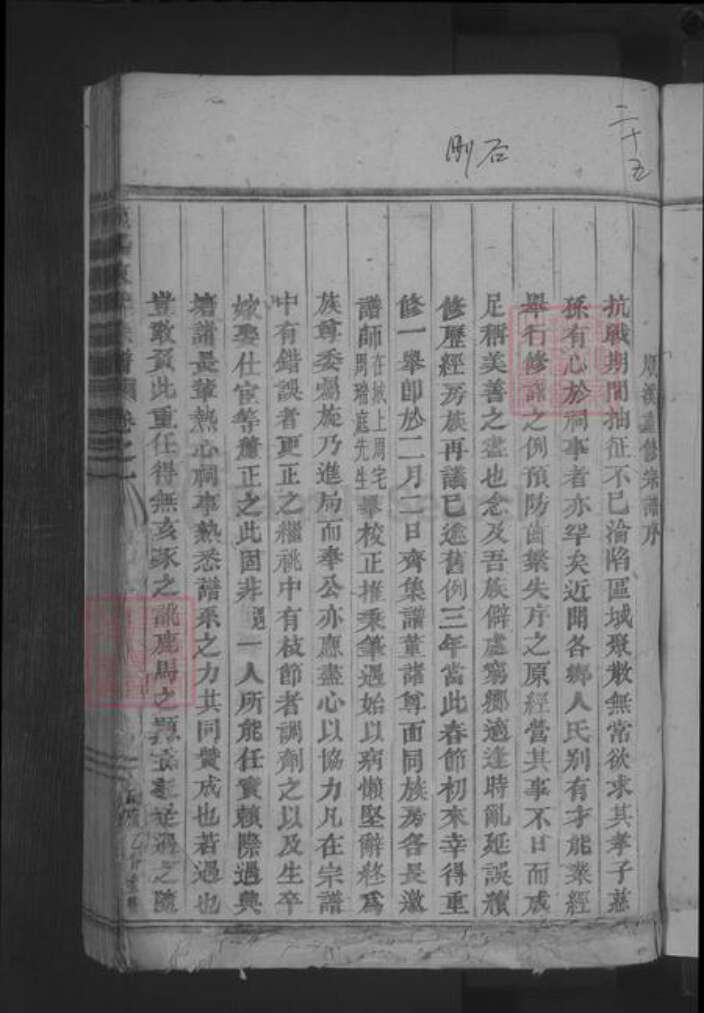 二十五
刚石
重修宗譜序
抗戰期間抽征不已淪陷區域聚散無常欲求其孝子慈
孫有心於祠事者亦罕矣近聞各鄉人氏别有才能業經
舉行修譜之例預防齒繁失序之原經營其事不日而成
足稱美善之盡也念及吾族僻處窮鄉適逢時亂延誤續
修歷經房族再議已逾舊例三年當此春節初來幸得重
修一舉卽於二月二日齊集譜董諸尊面同族房各長邀
譜師在城上周宅周瑞庭先生畢校正推秉筆過始以病懶堅辭終為
族尊委囑旋乃進局而奉公亦應盡心以協力凡在宗譜
中有錯誤者更正之繼祧中有枝節者調劑之以及生卒
嫁娶仕宦等釐正之此固非過一人所能任實賴際過典
塘諸長輩熱心祠事熟悉譜系之力其同贊成也若過也
豈敢負此重任得無亥豕之訛鹿馬之